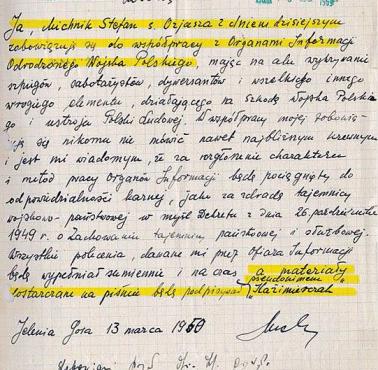 Ja, Michnik Stefan s. Ozjasza z dniem dzisiejszym
zobowiązuję się do współpracy z Organami Informacji
Odrodzonego Wojska Polskiego, mając na celu wykrywanie
szpiegów, sabotażystów, dywersantów i wszelkiego innego
wrogiego elementu, działającego na szkodę Wojska Polskie
go i ustroju Polski Ludowej. O współpracy mojej zobowią-
zuję się nikomu nie mówić nawet najbliższym krewnym
i jest mi wiadomym, że za rozgłoszenie charakteru
i metod pracy Organów Informacji będę pociągnięty do
odpowiedzialności karnej, jako za zdradę tajemnicy
wojskowo-państwowej w myśl Dekretu z dnia 26 października
1949 r. o zachowaniu tajemnicy państwowej i służbowej.
Wszystkie polecenia, dawane mi przez oficera Informacji
będę wypełniał sumiennie i na czas, a materiały
pseudonimem
dostarczane na piśmie będę podpisywał "Kazimierczak"
Jelenia Góra 13 marca 1950